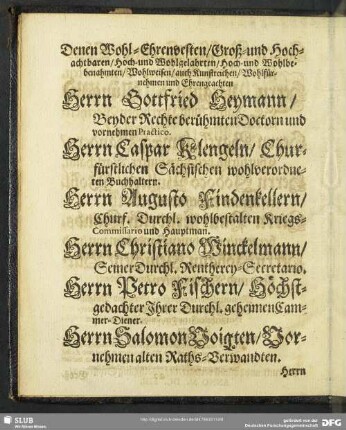 Denen Wohl-Ehrenvesten/Groß-und Hoch-
achtbaren/Hoch-und Wohlgelahrten/Hoch-und Wohlbe-
benahmten/Wohlweisen/auch Kunstreichen/Wohlfür-
nehmen und Ehrengeachten
Herrn Gottfried Heymann/
Beyder Rechte berühmten Doctorn und
vornehmen Practico.
Herrn Caspar Klengeln/Chur-
fürstlichen Sächsischen wohlverordne-
ten Buchhaltern.
Herrn Augusto Findenkellern/
Churf. Durchl. wohlbestalten Kriegs-
Commissario und Hauptman.
Herrn Christiano Winckelmann/
Seiner Durchl. Rentherey-Secretario.
Herrn Petro Fischern/Höchst-
gedachter Ihrer Durchl. geheimen Cam-
mer-Diener.
Herrn Salomon Voigten/Vor-
nehmen alten Raths-Verwandten.
Herrn
SLUB
Wir führen Wissen.
gefördert von der
Deutschen Forschungsgemeinschaft
DFG